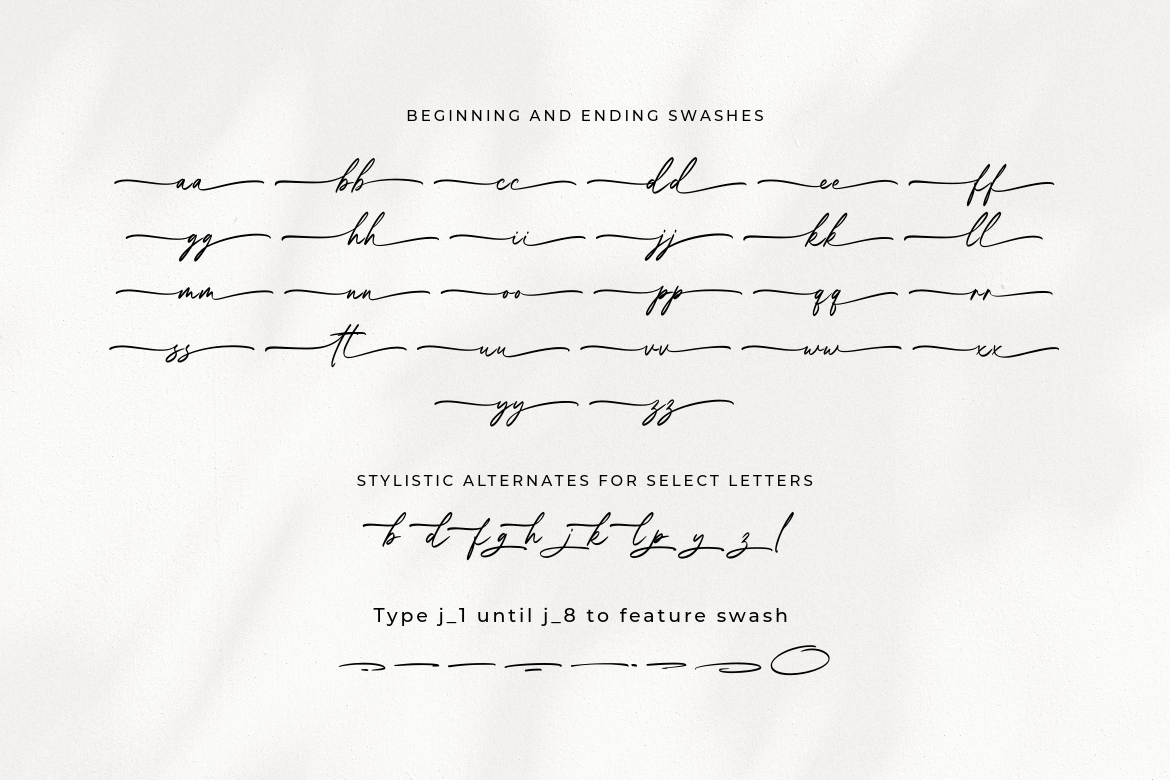 BEGINNING AND ENDING SWASHES
aa bb cc dd ee ff
gg hh ii jj kk ll
mm nn oo pp qq rr
ss tt uu vv ww xx
yy zz
STYLISTIC ALTERNATES FOR SELECT LETTERS
b d f g h j k l p y z l
Type j_1 until j_8 to feature swash